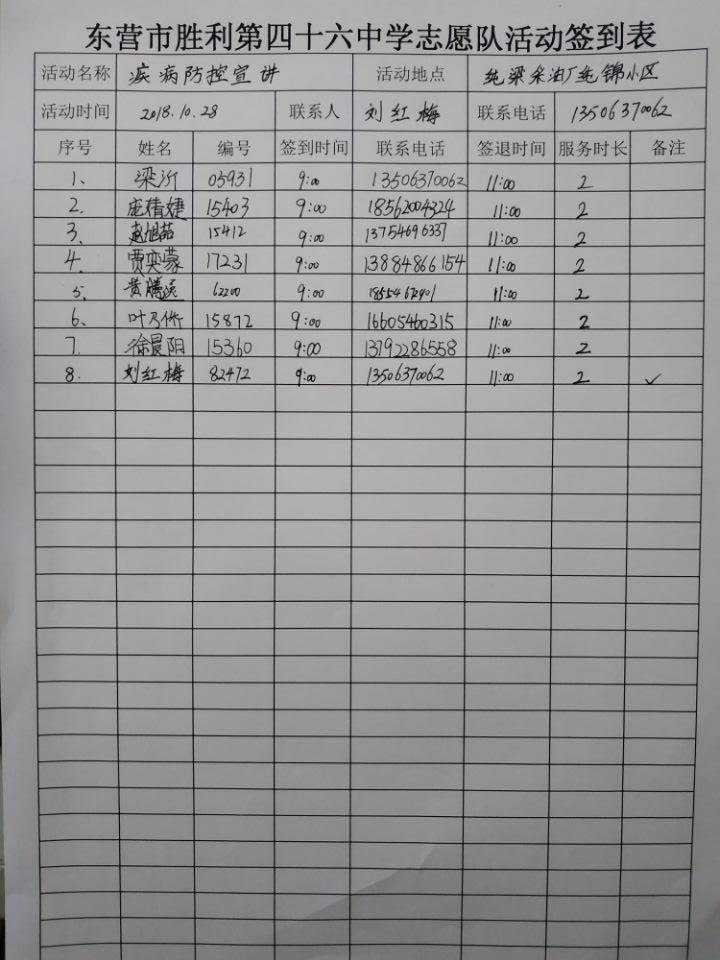 东营市胜利第四十六中学志愿队活动签到表
活动名称 疾病防控宣讲 活动地点 纯梁采油厂纯锦小区
活动时间 2018.10.28 联系人 刘红梅 联系电话 13506370062
序号 姓名 编号 签到时间 联系电话 签退时间 服务时长 备注
1、 梁沂 05931 9:00 13506370062 11:00 2
2. 庞精婕 15403 9:00 18562004324 11:00 2
3. 赵旭茹 15412 9:00 13754696337 11:00 2
4. 贾奕蒙 17231 9:00 13884866154 11:00 2
5. 黄腾 62200 9:00 11:00 2
6、 叶乃侨 15872 9:00 16605460315 11:00 2
7. 徐晨阳 15360 9:00 13792286558 11:00 2
8. 刘红梅 82472 9:00 13506370062 11:00 2 ✓